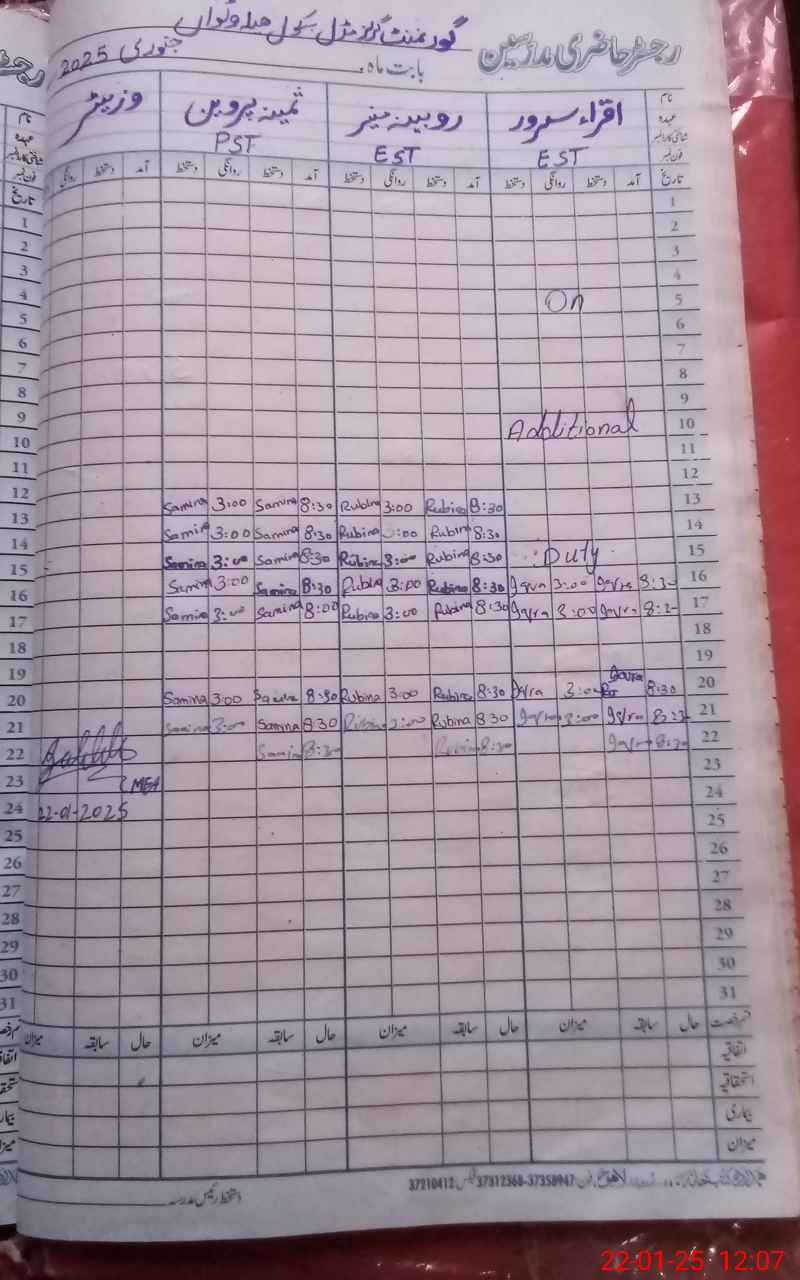 رجسٹر حاضری مدرسین
گورنمنٹ گرلز مڈل سکول
بابت ماہ جنوری 2025
نام
عہدہ
فون نمبر
اقراء سرور
EST
روبینہ منیر
EST
ثمینہ پروین
PST
وزیٹر
تاریخ آمد دستخط روانگی دستخط آمد دستخط روانگی دستخط آمد دستخط روانگی دستخط آمد دستخط روانگی
1
2
3
4
5 On
6
7
8
9
10 Additional
11
12
13 8:30 Rubina 3:00 Rubina 8:30 Samina 3:00 Samina
14 8:30 Rubina :00 Rubina 8:30 Samina 3:00 Samina
15 Duty 8:30 Rubina 3:00 Rubina 8:30 Samina 3:00 Samina
16 Iqra 3:00 Iqra 8:30 Rubina 3:00 Rubina 8:30 Samina 3:00 Samina
17 Iqra 3:00 Iqra 8:30 Rubina 3:00 Rubina 8:00 Samina 3:00 Samina
18
19
20 8:30 Iqra 3:00 Iqra 8:30 Rubina 3:00 Rubina 8:30 Samina 3:00 Samina
21 Iqra 3:00 Iqra 8:30 Rubina 3:00 Rubina 8:30 Samina 3:00 Samina
22 8:30 Iqra 8:30 Rubina 8:30 Samina
23 MEA
24 22-01-2025
25
26
27
28
29
30
31
حال سابقہ میزان حال سابقہ میزان حال سابقہ میزان حال سابقہ میزان
اتفاقیہ
استحقاقیہ
بیماری
میزان
37312368-37358947 37210412
دستخط رئیس مدرسہ
22-01-25 12:07